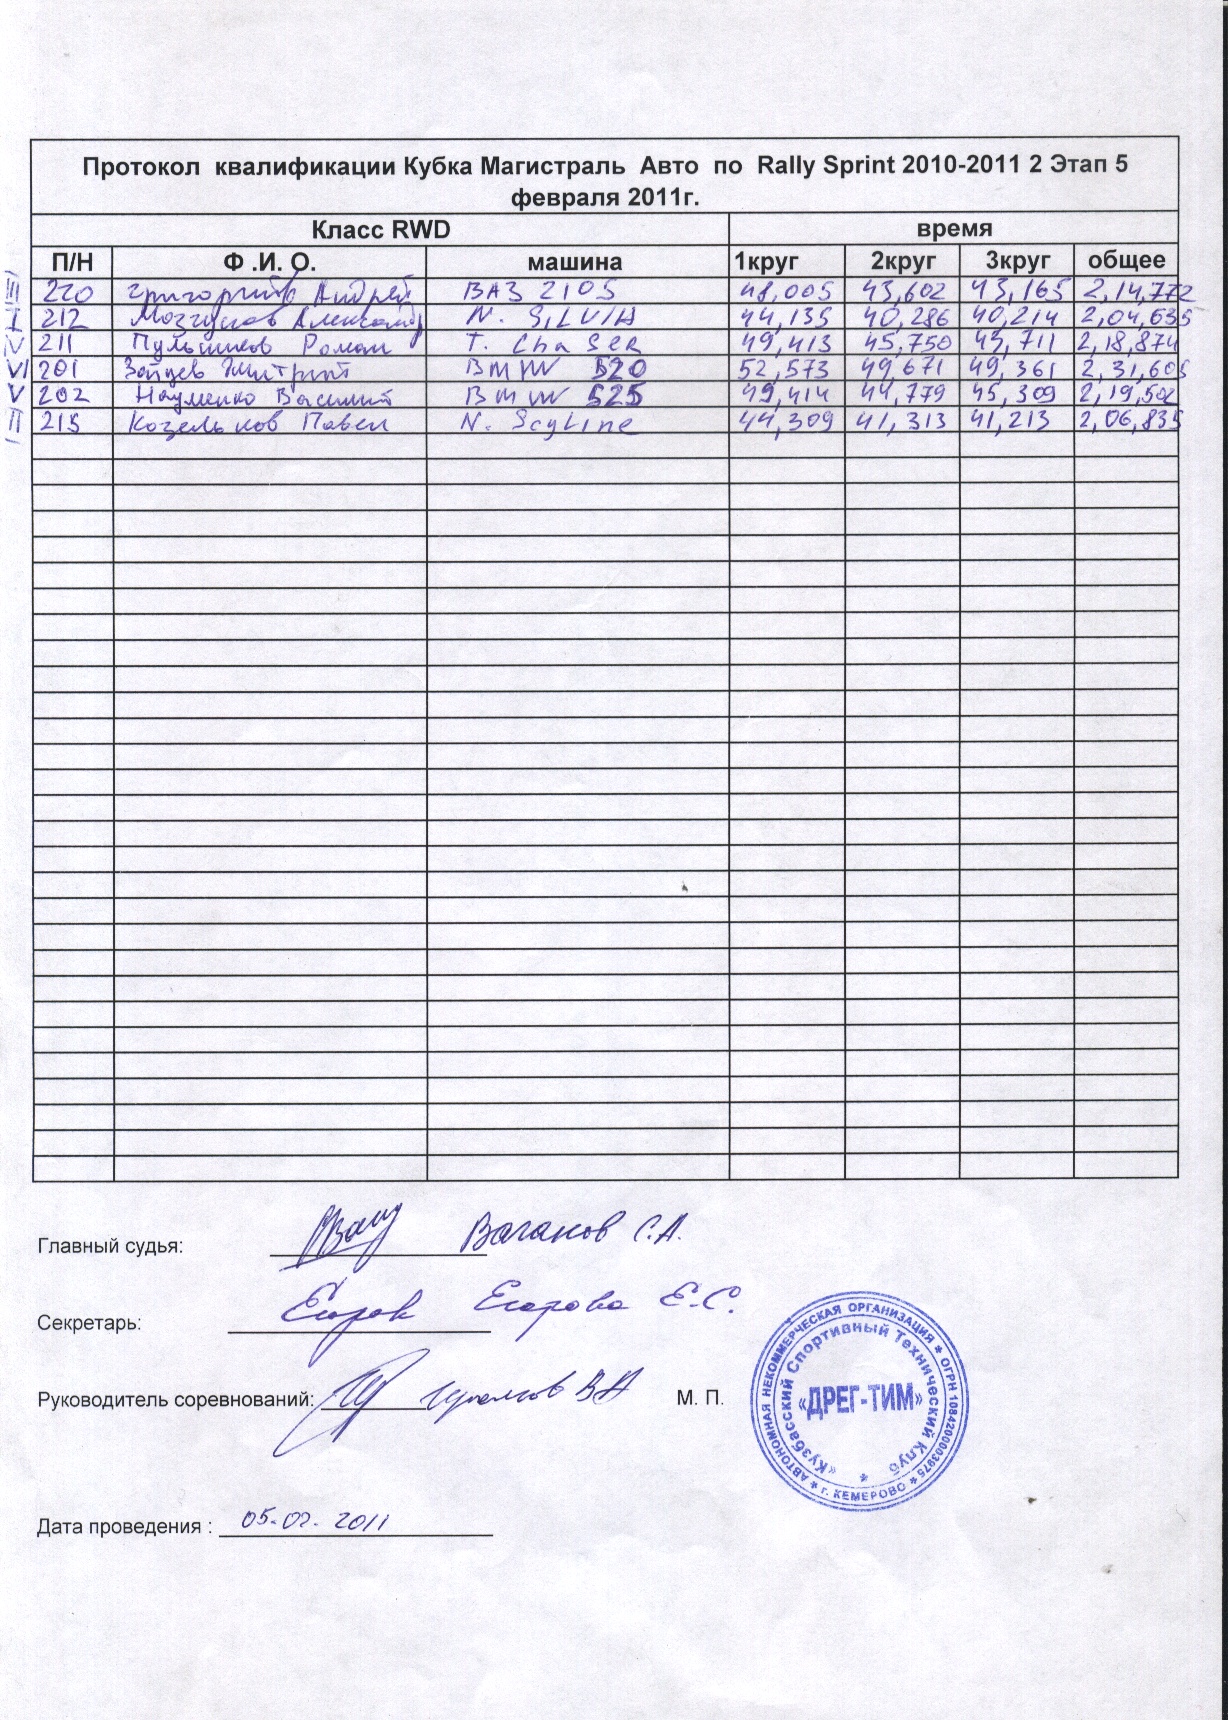 Протокол квалификации Кубка Магистраль Авто по Rally Sprint 2010-2011 2 Этап 5
февраля 2011г.
Класс RWD время
П/Н Ф .И. О. машина 1круг 2круг 3круг общее
III 220 Андрей ВАЗ 2105 48,005 43,602 43,165 2,14,772
I 212 Александр N. SILVIA 44,135 40,286 40,214 2,04,635
IV 211 Роман T. ChaSeR 49,413 45,750 43,711 2,18,874
VI 201 Зайцев Дмитрий BMW 520 52,573 49,671 49,361 2,31,605
V 202 Науменко Василий BMW 525 49,414 44,779 45,309 2,19,502
II 215 Козельков Павел N. ScyLine 44,309 41,313 41,213 2,06,835
Главный судья: Ваганов С.А.
Секретарь: Егорова Е.С.
Руководитель соревнований: М. П.
Дата проведения : 05.02.2011
АВТОНОМНАЯ НЕКОММЕРЧЕСКАЯ ОРГАНИЗАЦИЯ * ОГРН 1084200003975 * г. КЕМЕРОВО *
«Кузбасский Спортивный Технический Клуб
«ДРЕГ-ТИМ»